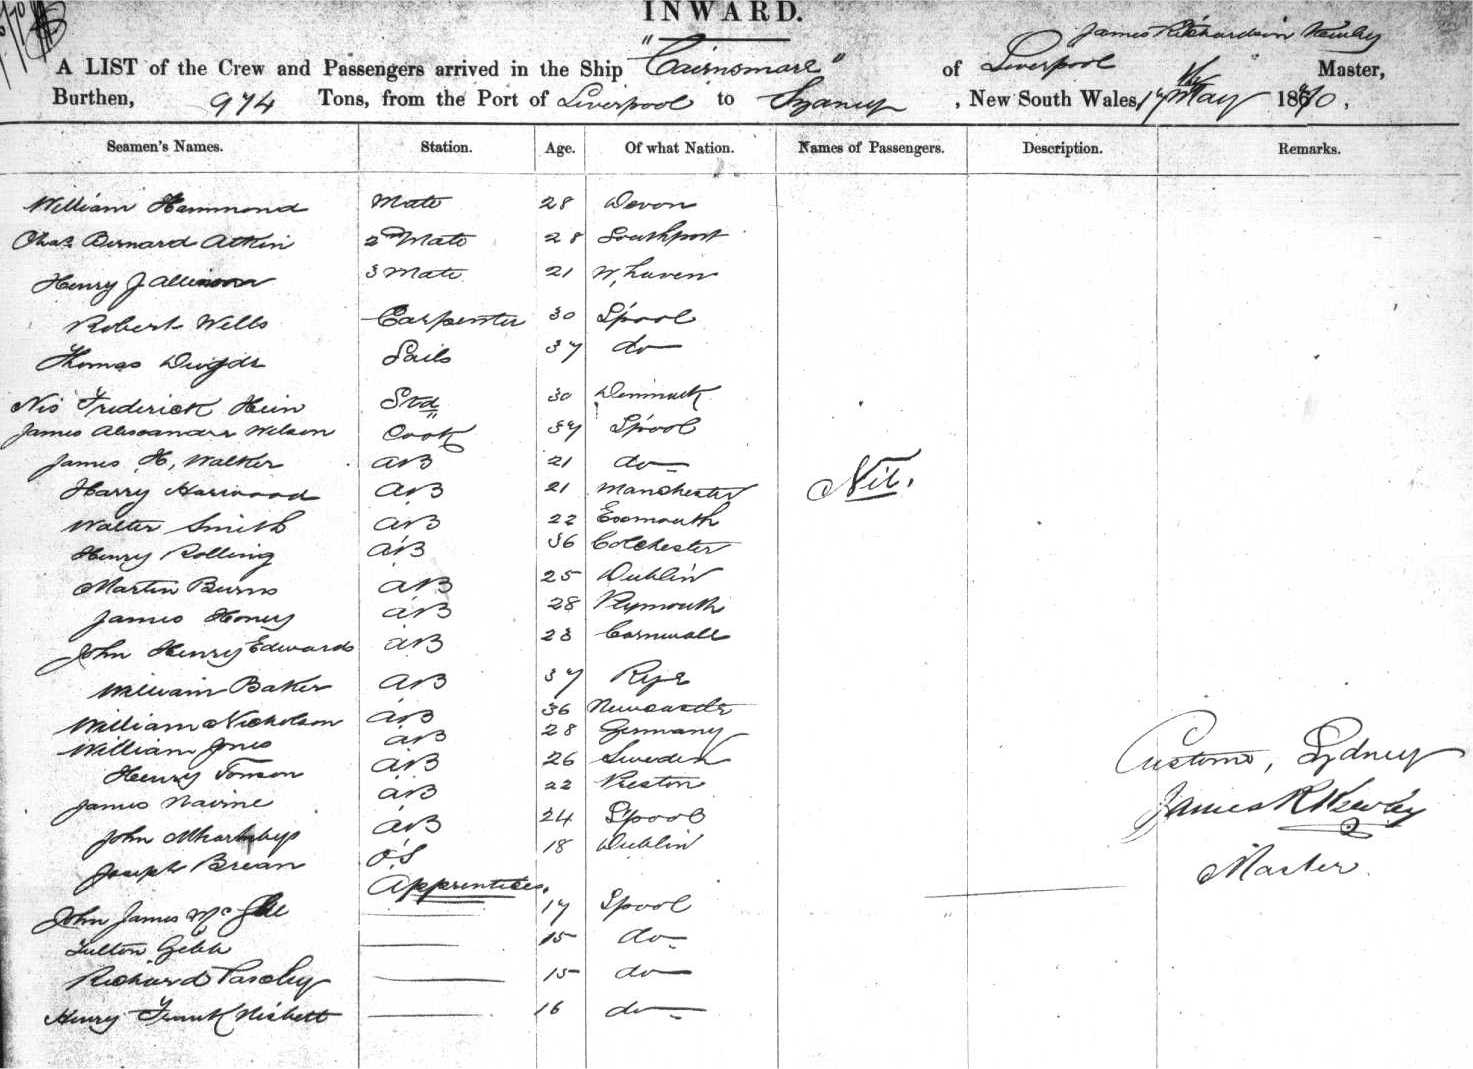 INWARD.
James Richardson Kewley
A LIST of the Crew and Passengers arrived in the Ship "Cairnsmore" of Liverpool Master,
Burthen, 974 Tons, from the Port of Liverpool to Sydney, New South Wales, 17 May 1870,
Seamen's Names. Station. Age. Of what Nation. Names of Passengers. Description. Remarks.
William Hammond Mate 28 Devon
Chas Bernard Atkin 2nd Mate 28 Southport
Henry J 3 Mate 21 W,haven
Robert Wells Carpenter 30 L'pool
Thomas Sails 37 do
Nis Frederick Hein Std 30 Denmark
James Alexander Wilson Cook 37 L'pool
James H, Walker AB 21 do
Harry Harwood AB 21 Manchester
Nil.
Walter Smith AB 22 Exmouth
Henry Rolling AB 36 Colchester
Martin Burns AB 25 Dublin
James Honey AB 28 Plymouth
John Henry Edwards AB 23 Cornwall
William Baker AB 37 Rye
William Nicholson AB 36 Newcastle
William Jones AB 28 Germany
Henry Tonson AB 26 Sweden
James Nairne AB 22 Preston
John AB 24 L'pool
Joseph Brean OS 18 Dublin
Customs, Sydney
James R Kewley
Master
Apprentices.
John James Mc 17 L'pool
Gibb 15 do
Richard Pascley 15 do
Henry Frank Nisbett 16 do